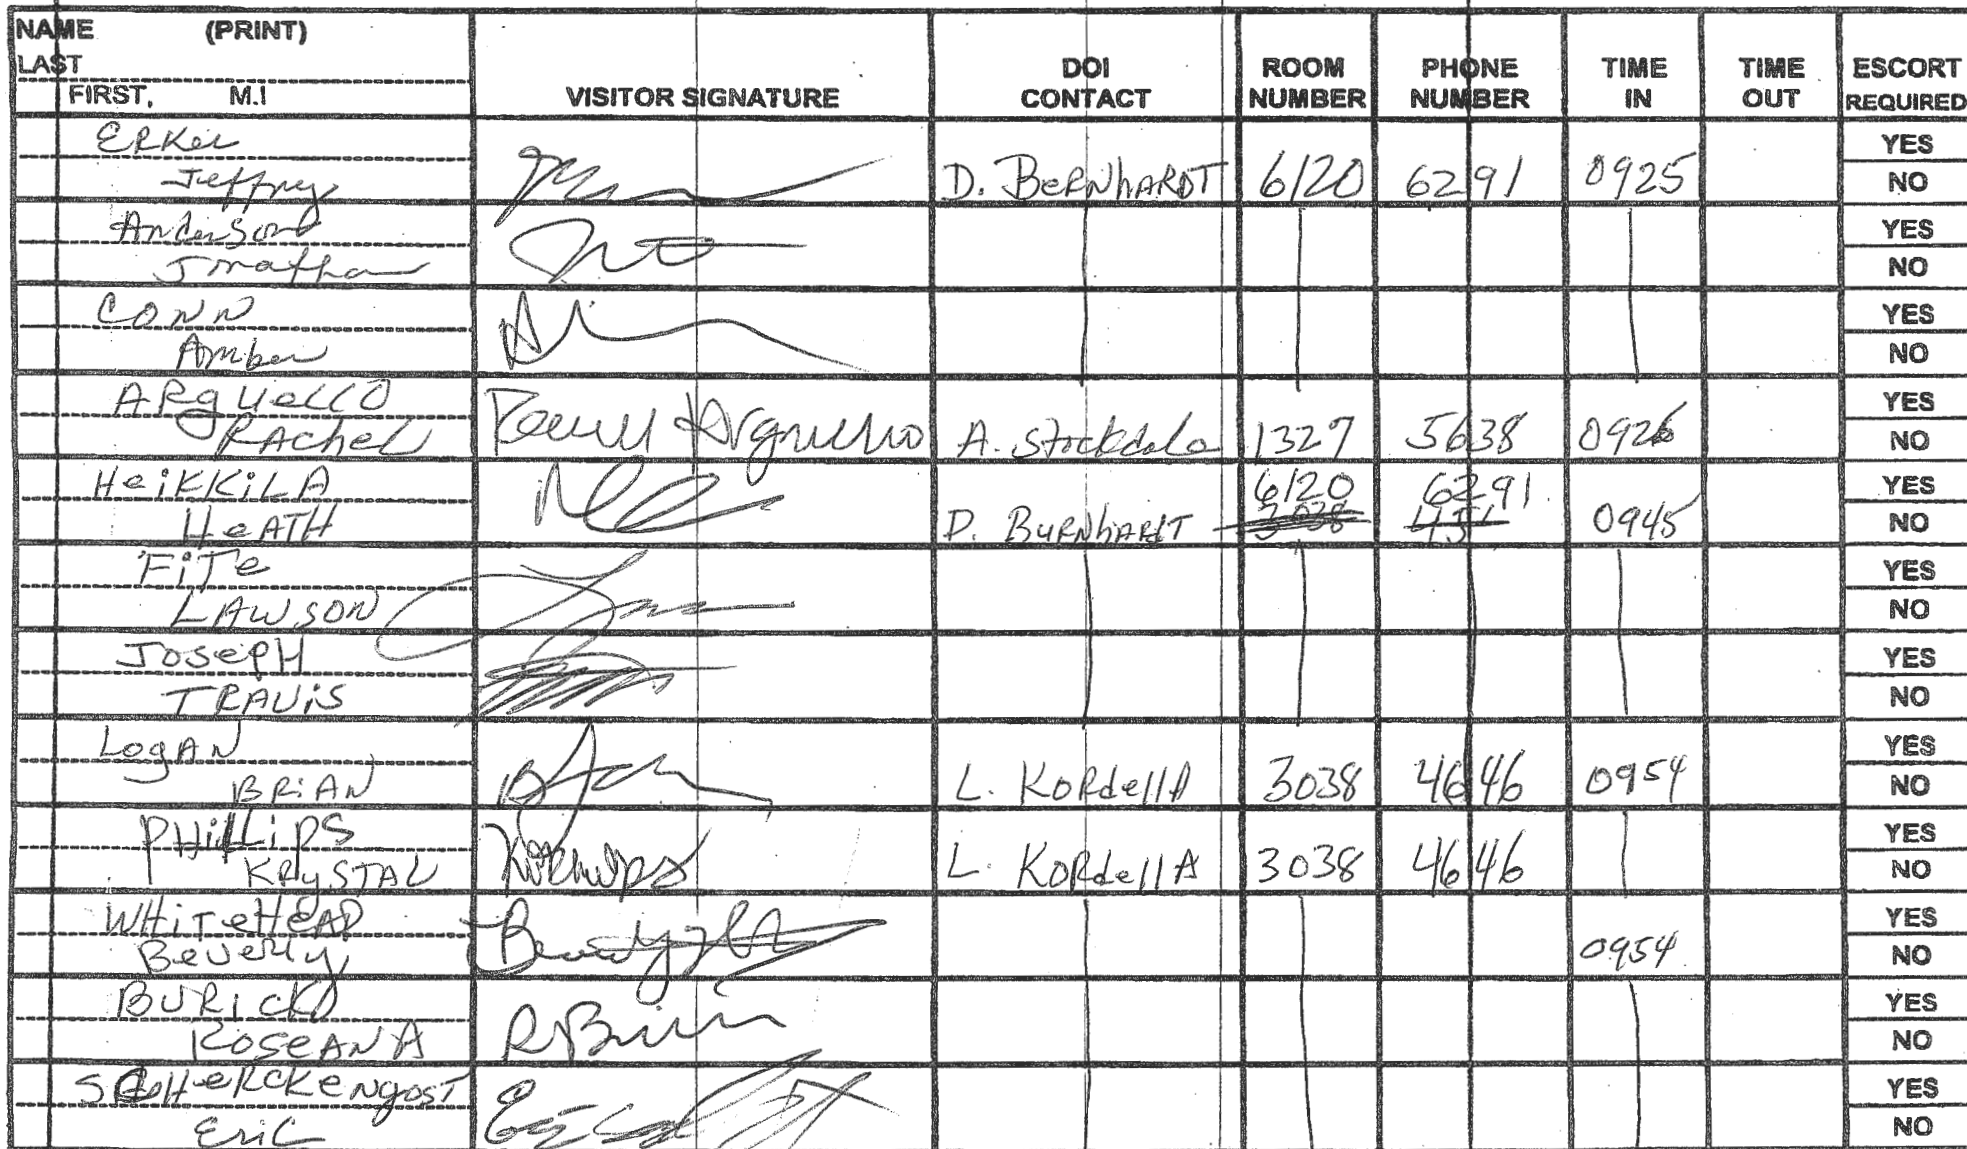 NAME (PRINT)
LAST
FIRST, M.I
VISITOR SIGNATURE
DOI CONTACT
ROOM NUMBER
PHONE NUMBER
TIME IN
TIME OUT
ESCORT REQUIRED
Erker
Jeffrey
D. BERNHARDT 6120 6291 0925
YES
NO
Anderson
Jonathan
YES
NO
CONN
Amber
YES
NO
ARguello
RAchel
Arguello A. Stockdale 1327 5638 0926
YES
NO
HeiKKiLA
HeATH
6120 6291
D. BURNhARdT 3038 0945
YES
NO
FiTe
LAWSON
YES
NO
JosepH
TRAViS
YES
NO
LogAN
BRiAN
L. KORdellA 3038 4646 0954
YES
NO
PHiLLipS
KRySTAL
L. KORdellA 3038 4646
YES
NO
WHiTeHeAD
BeVerly
0954
YES
NO
BURicK
RoseANA
YES
NO
SCHeRCKeNgosT
Eric
YES
NO